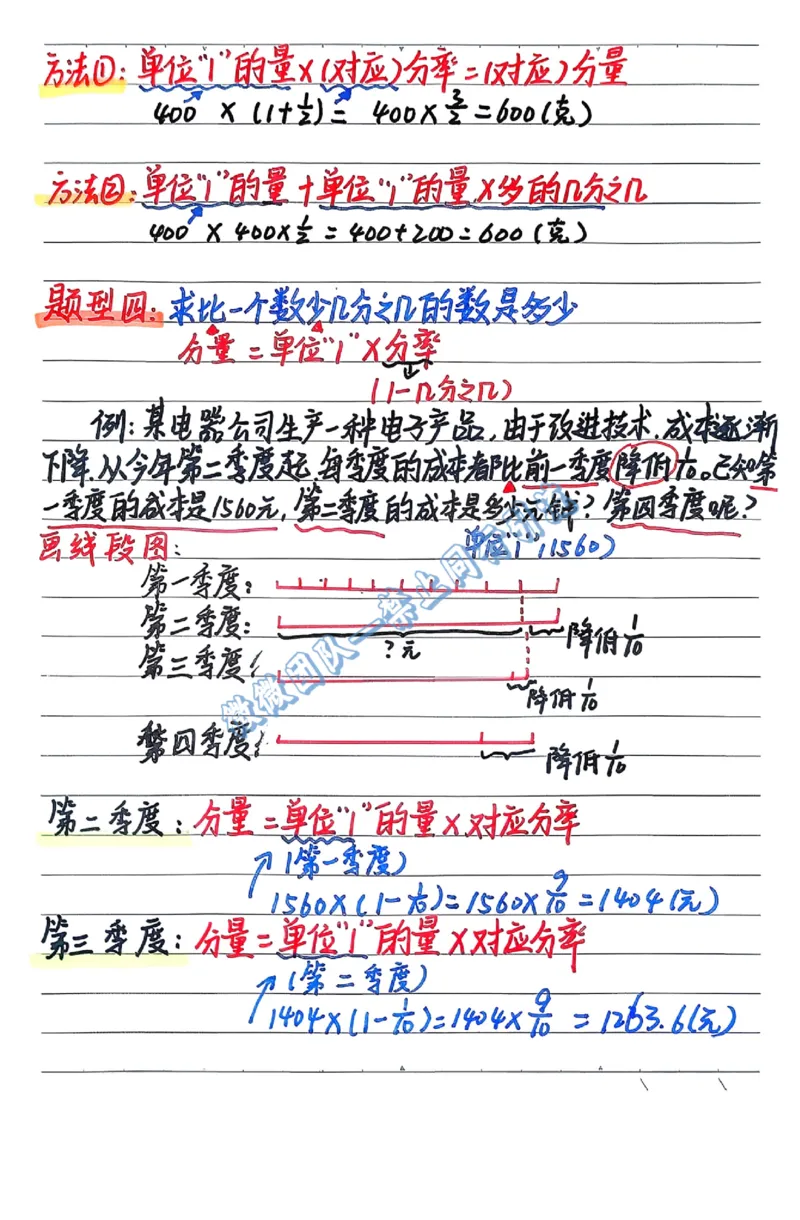 方法①：单位“1”的量×(对应)分率=(对应)分量
400 × (1+1/2)= 400×3/2=600(克)
方法②：单位“1”的量+单位“1”的量×多的几分之几
400 × 400×1/2=400+200=600(克)
题型四：求比一个数少几分之几的数是多少
分量=单位“1”×分率
(1-几分之几)
例：某电器公司生产一种电子产品，由于改进技术，成本逐渐
下降.从今年第二季度起.每季度的成本都比前一季度降低1/10。已知第
一季度的成本是1560元，第二季度的成本是多少元钱？第四季度呢？
画线段图：
单位“1”(1560)
第一季度：
第二季度：
降低1/10
?元
第三季度：
降低1/10
第四季度：
降低1/10
第二季度：分量=单位“1”的量×对应分率
(第一季度)
1560×(1-1/10)=1560×9/10=1404(元)
第三季度：分量=单位“1”的量×对应分率
(第二季度)
1404×(1-1/10)=1404×9/10=1263.6(元)